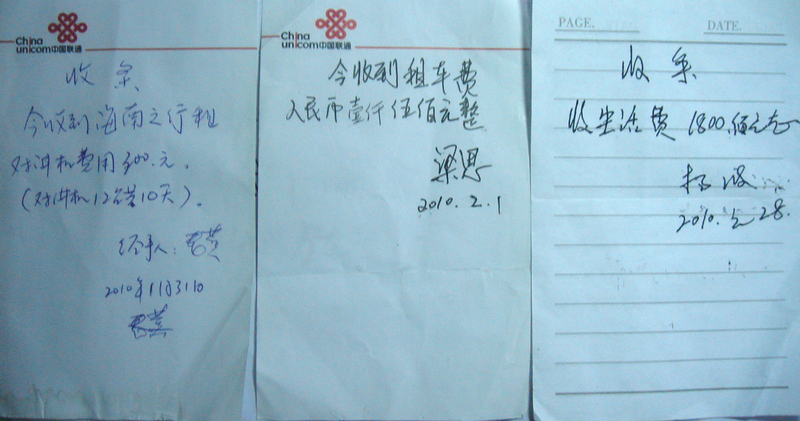 China
unicom中国联通
收条
今收到海南之行租
对讲机费用300.元。
(对讲机12台共10天)。
经手人:
2010年1月31日
China
unicom中国联通
今收到租车费
人民币壹仟伍佰元整
梁恩
2010.2.1
PAGE. DATE.
收条
收生活费 1800.
杨波
2010. 28.